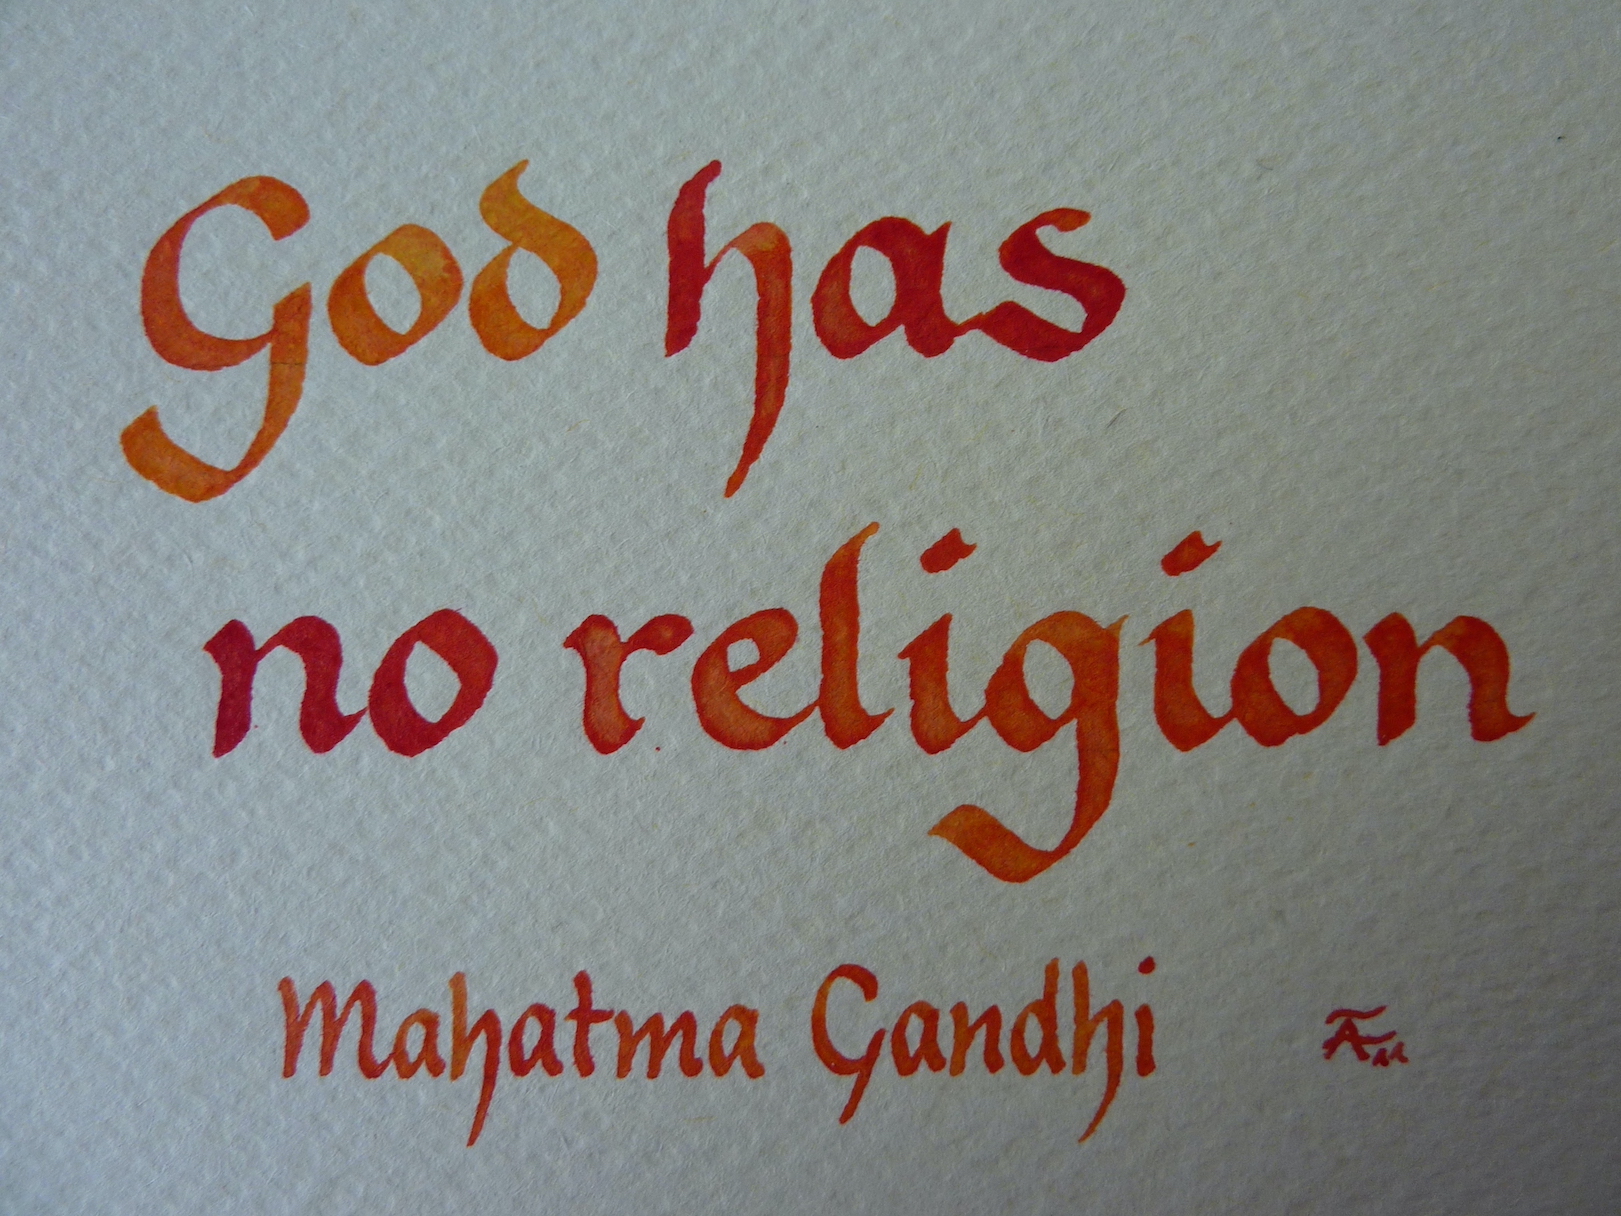 God has
no religion
Mahatma Gandhi